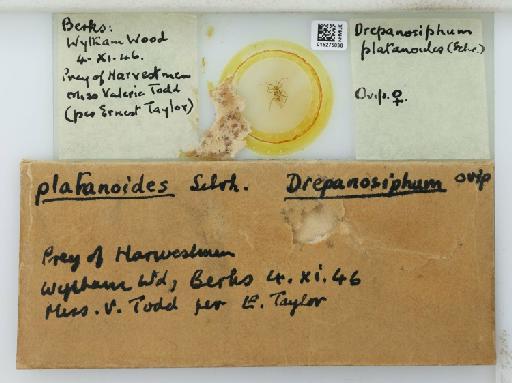 Berks:
Wytham Wood
4. XI. 46.
Prey of Harvestmen
Miss Valerie Todd
(per Ernest Taylor)
Drepanosiphum
platanoides (Schr.)
Ovip. ♀.
platanoides Schrk. Drepanosiphum ovip
Prey of Harvestmen
Wytham Wd, Berks 4. xi. 46
Miss. V. Todd per E. Taylor